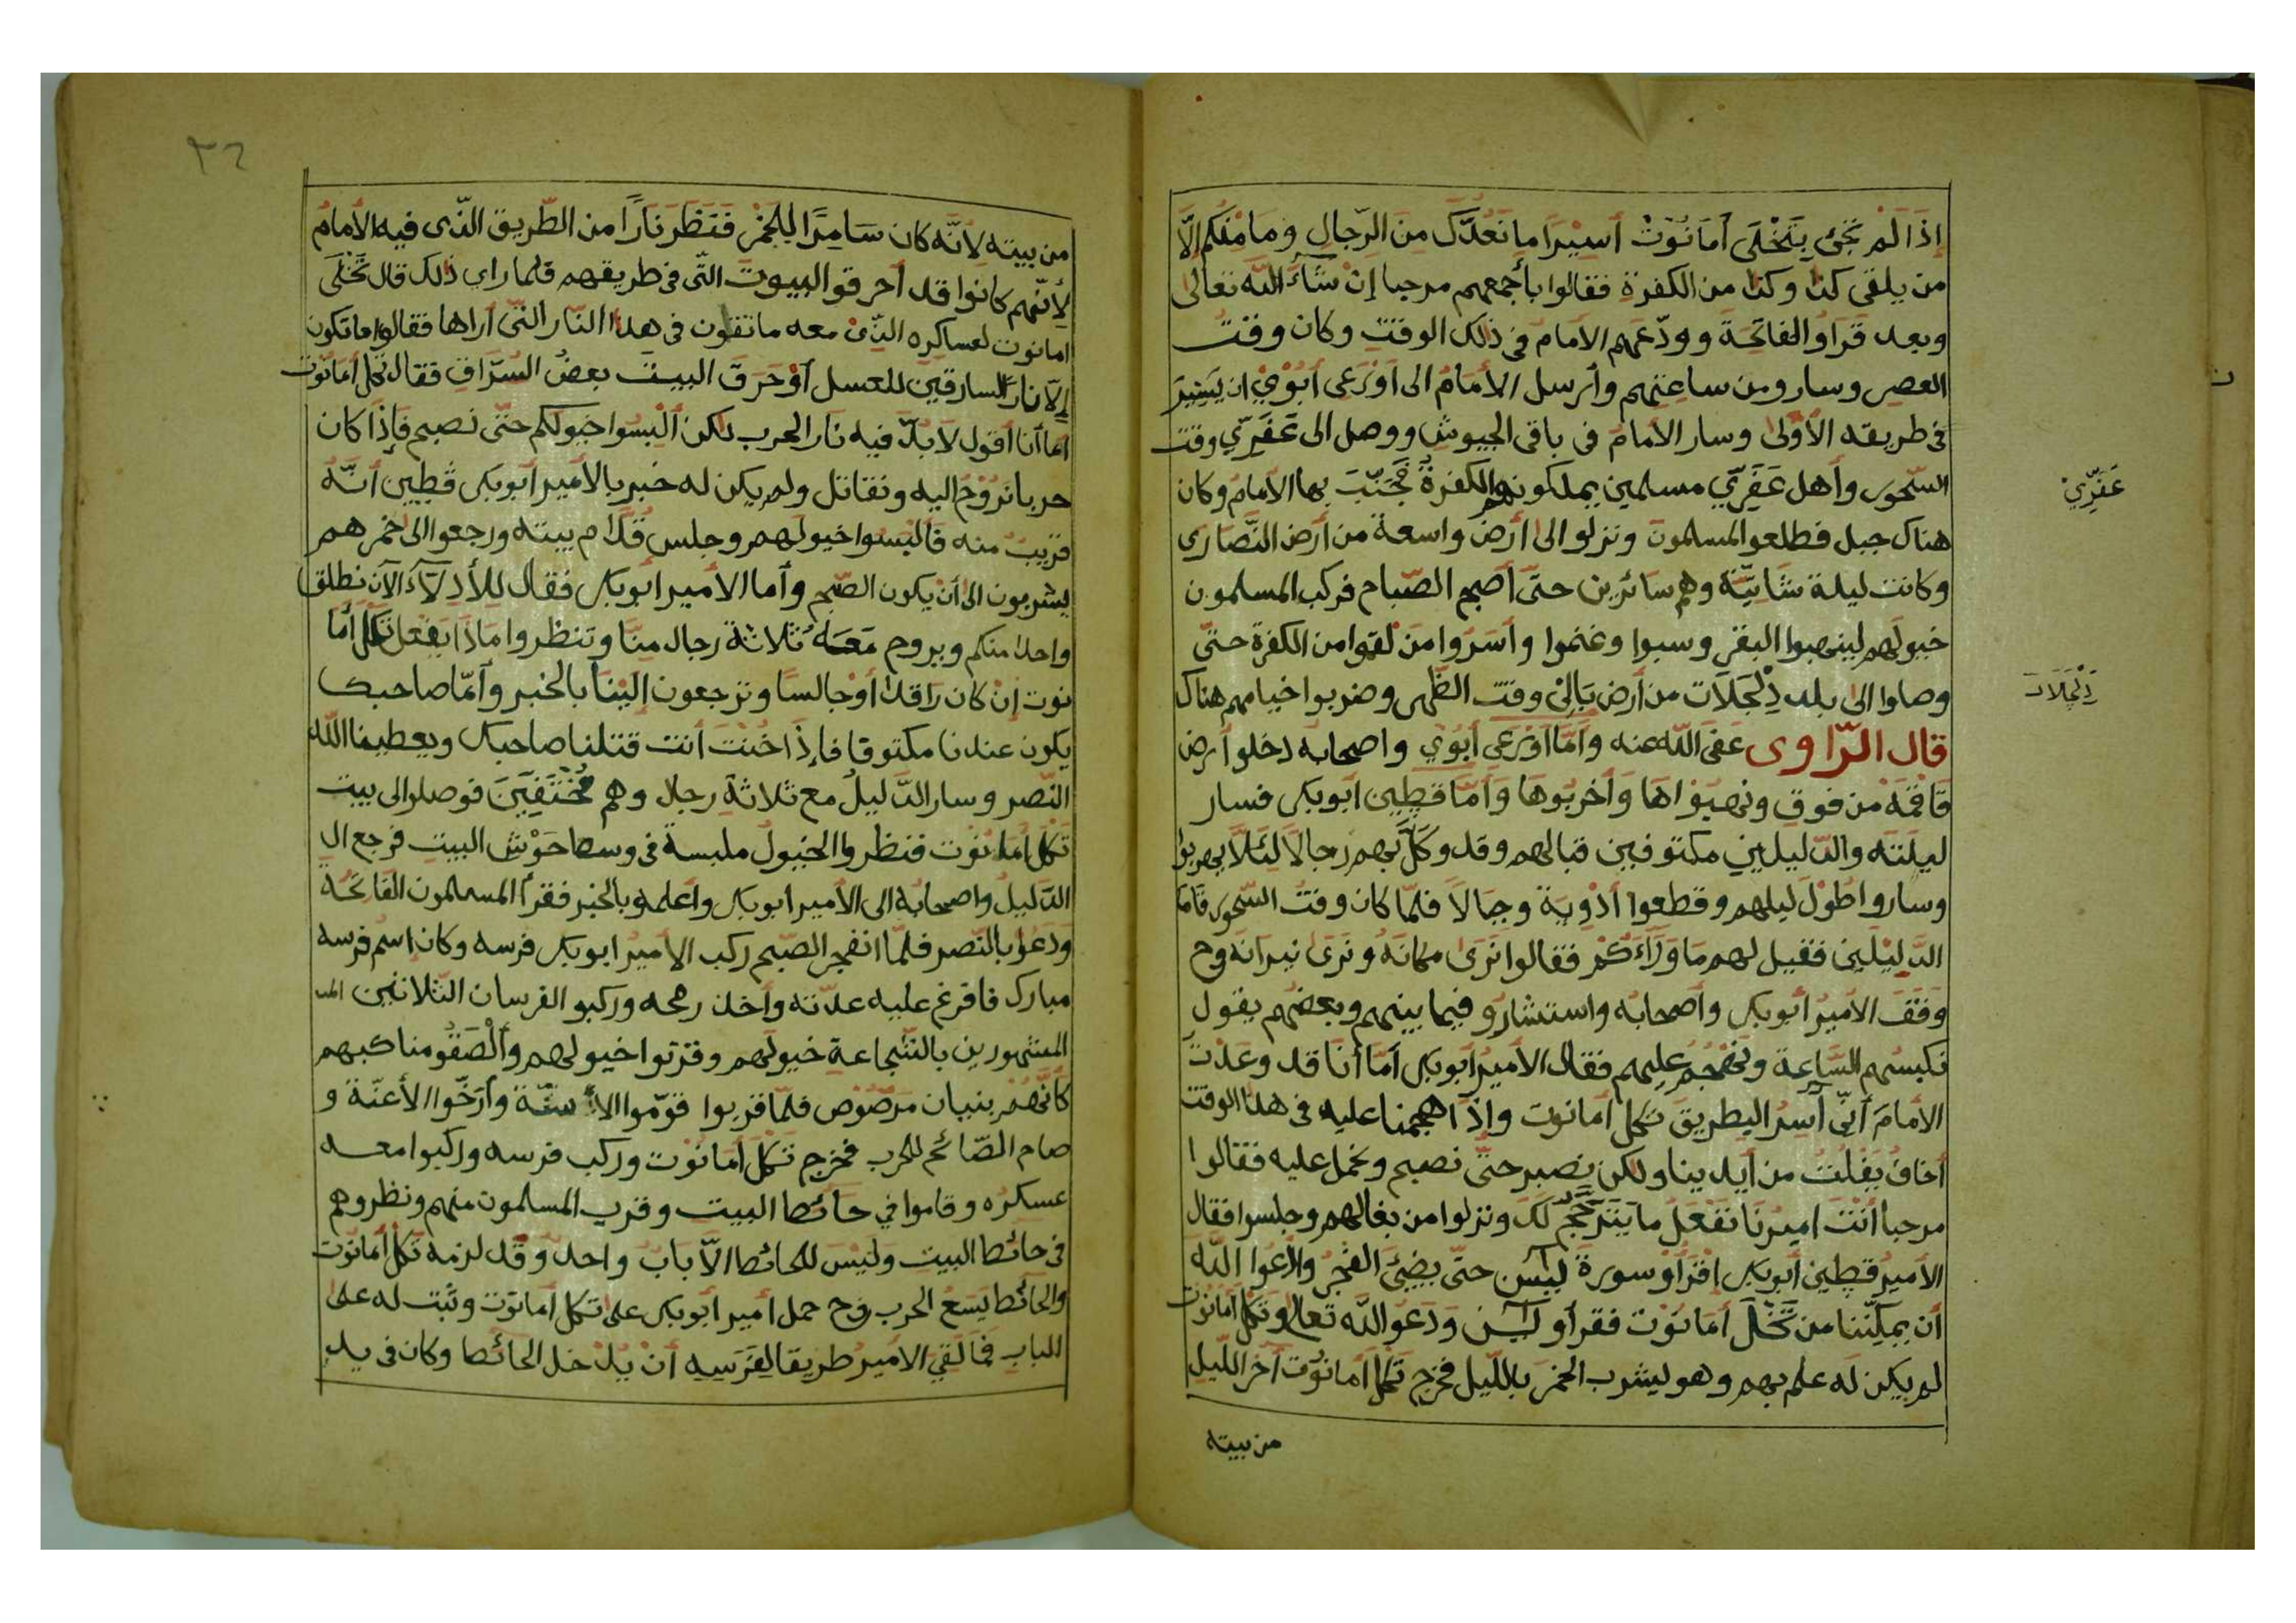 إذَا لَمْ تَجِئ بِتَخْلَى أَمَانُوْتْ أَسِيْرًا مَا نَعُدُّكَ مِنَ الرِّجالِ وَمَا مِنْكُم إِلَّا
من يلقى كذا وكذا من الكفرة فقالوا بأجمعهم مرحبا إنْ شَآءَ اللّه تعالى
وبعد قَرَاؤ الفاتحَة وودّعَهم الامامُ في ذلك الوقتِ وكان وقت
العصر وسارو من ساعتهم وأرسل الأمَامُ الى أَوْرَعِى أَبُوْبِيْ ان يَسِيرَ
في طريقه الأوّلى وسار الامامُ فى باقى الجيوشِ ووصل الى عَفَرِّي وقت
السّحور وأهل عَفَرِّي مسلمين يملكونهم الكفرة فجَنّبَ بها الأمامُ وكان
هناك جبل فطلعو المسلمون ونزلو الى أرضٍ واسعة من أرض النَّصَارى
وكانت ليلة شَاتِيَّة وهم سائرين حتّى أصبح الصّباح فركب المسلمون
خيولهم لينهبوا البقر وسبوا وغنموا وأسَرُوا مَنْ لقوا من الكفرة حتّى
وصلوا الى بلد دَلْجَلَات من أرض بَالِى وقت الظّهر وضربوا خيامهم هناك
قال الرّاوى عَفى اللّه عنه وأمَّا أَوْرَعِى أَبُوْبِي واصحابه دخلو أرض
قَاقْمَهْ من فوق ونهبواهَا وَأخربُوهَا وَأمّا قطِين أبوبكر فسار
ليلَتَه والدّليلين مكتوفين قبالهم وقد وَكَّلَ بهم رجالًا لِئَلَّا يهربوا
وساروا طُوْلَ ليلهم وقطعوا أوْدِيَة وجبَالًا فلمّا كان وقتُ السّحور قاما
الدَّلِيْلَين فقيل لهم مَا وَرَآءَكُمْ فقالوا نَرَى مكانَهُ ونَرَى نيرانَهُ وح
وَقَفَ الأميرُ أبوبكر وأصحابه واستشارُو فيما بينهم وبعضهم يقول
نكبسُهم السَّاعة ونَهْجُم عليهم فقال الأميرُ أبوبكر أمّا أنَا قد وعَدْتُ
الأمامَ أنّي آسِرُ البطريق تخلى أمانوت وإذَا هجمنا عليه فى هذا الوقت
أخافُ يَفْلتُ من أيدينا ولكن نصبر حتَّى نصبح ونحمل عليه فقالوا
مرحبا أنْتَ اميرنَا نفعَل ما يَتَرَجَّحُ لَكَ ونزلوا من بغالهم وجلسوا فقال
الأميرُ قطين أبوبكر اقْرَأؤ سورة ليٓس حتّى يضِيَئ الفجرُ وادعُوا اللّه
أن يمكِنّنا من تَخْلَى أمَانُوْت فقرأو ليٓس وَدَعَوْا اللّه تعالى وتَخْلى أمَانوْت
لم يكن لَه علم بهم وهو يشرب الخمْرَ باللّيل فخرج تخلى أمَانوْت آخر اللّيل
من بيته
عَفَرِّيْ
دَلْجَلَات
٣٦
من بيته لأنّه كان سَامِرًا لِلْخَمْرِ فَنَظَرَ نَارًا من الطّريق الّذى فيه الأمامُ
لأنّهم كانوا قد أحرقو البيوت التّى فى طريقهم فلما راى ذلك قال تَخْلَى
امانوت لعساكره الّذِيْ معه ما تقلون فى هذا النّار الّتى أراها فقالوا ما تكون
إلّا نارَ السارقين للعسل أوْ حَرَقَ البيتَ بعضُ السُرّاق فقال تخلى أمَانُوت
أما أنا أقول لَا بُدّ فيه نَار الحرب لكن ألْبِسُوا خيولكم حتّى نصبح فإذَا كان
حربا نَرُوْحُ اليه ونقاتل ولم يكن له خبر بالأمير أبوبكر قطِين أنّهُ
قريبٌ منه فألبَسُوا خيولهم وجلس قُدَّام بيته ورجعوا الى خمرهم
يشربون الى أنْ يكون الصّبح وأما الأمير ابوبكر فقال للأدِلّآءَ الآن نطلق
واحدًا منكم ويروح مَعَهُ ثَلَاثَة رجال مِنّا وتنظروا مَاذَا يَفعل تخلى أمَا
نوت إنْ كان رَاقدًا أوْ جالسًا وترجعون إلَيْنَا بالخبر وأمّا صاحبك
يكون عندنا مكتوفا فإذَا خُنْتَ أنت قتلنا صاحبك ويعطينا اللّه
النّصر وسار الدَّليلُ مع ثلاثةِ رجال وهم مُخْتَفِيَنَ فوصلو الى بيت
تخلى أمَانوْت فنظروا الخيولُ ملبسة فى وسط حَوْش البيتِ فرجع ال
الدَّليلُ واصحابُه الى الأمير ابوبكر واعلمو بالخبر فقرأ المسلمون الفاتحَة
وَدَعَوْا بالنّصر فلمّا انفجر الصّبح ركب الأميرُ ابوبكر فرسه وكان اسم فرسه
مبارك فافرغ عليه عدّته وأخذ رمحه وركبو الفرسان الثّلاثين الم
المشهورين بالشّجاعة خيولَهم وقرّبوا خيولهم وألْصَقُو مناكبهم
كأنّهُمْ بنيان مَرصُوْص فلمّا قربوا قوّموا الأسنّة وأرخّوا الأعنّة و
صام الصّائح للحرب فخرج تخلى أمَانُوْت وركب فرسه وركبوا معه
عسكره وقاموا في حائط البيت وقرب المسلمون منهم ونظروهم
فى حائط البيت وليْسَ للحائط الاّ بابٌ واحدٌ وقد لزمه تخلى أمانوت
والحائط يَسَعُ الحرب وح حمل أمير ابوبكر على تخلى أمانوت وثبت له على
الباب فما لَقِيَ الاميرُ طريقا لِفَرَسِه أنْ يدخل الحائط وكان فى يد